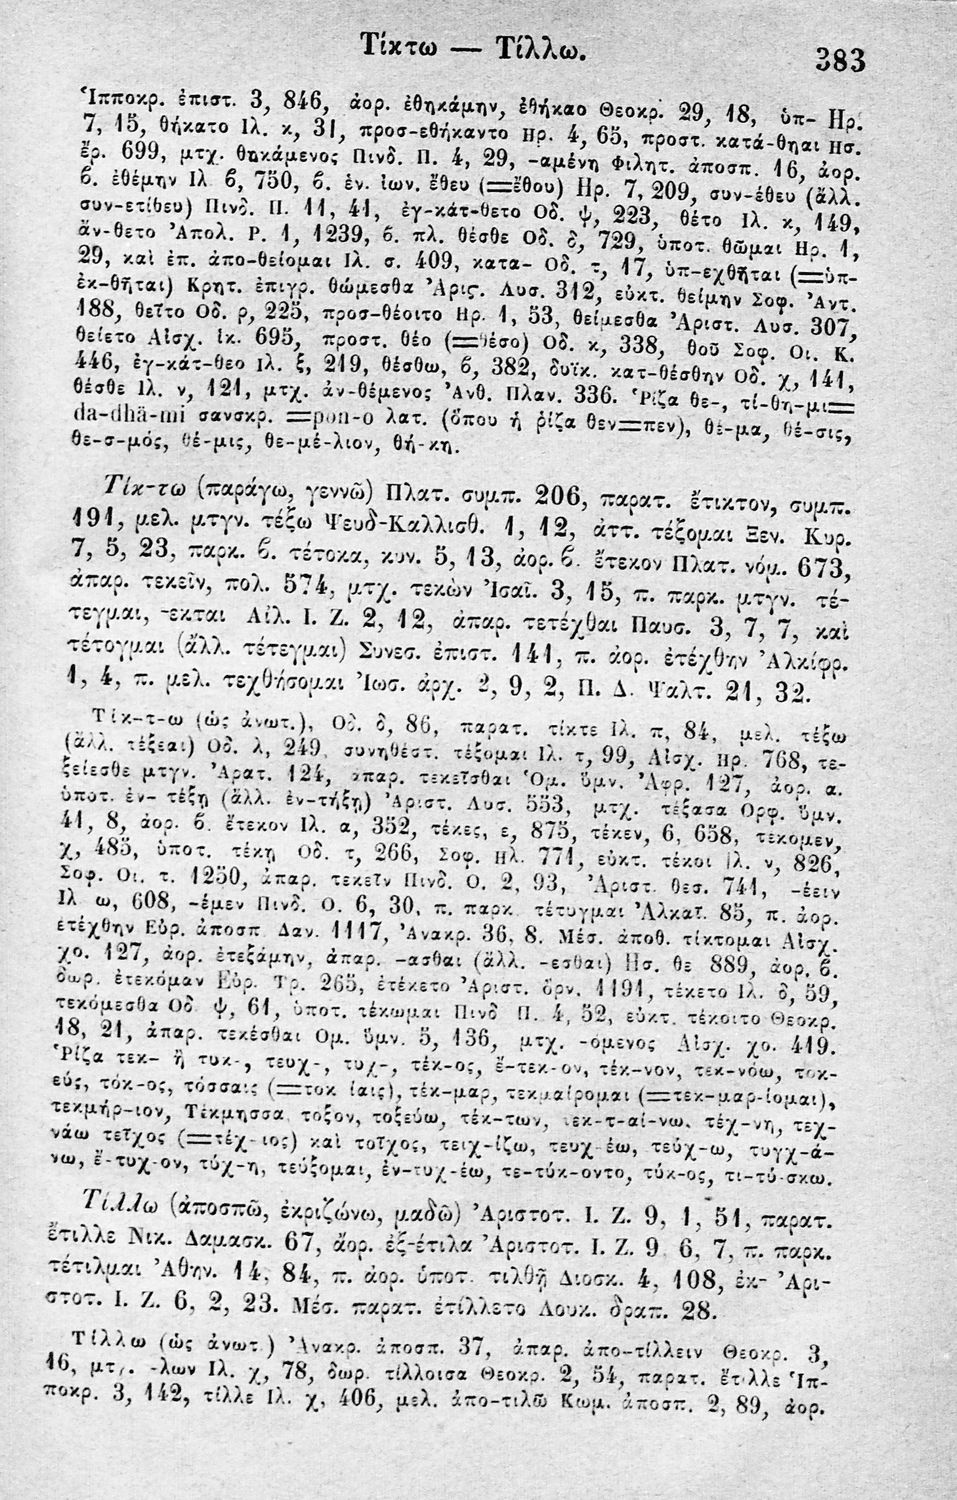 Τίκτω — Τίλλω.
383
Ἱπποκρ. ἐπιστ. 3, 846, ἀορ. ἐθηκάμην, ἐθήκαο Θεοκρ. 29, 18, ὑπ- Ηρ.
7, 15, θήκατο Ιλ. κ, 31, προσ-εθήκαντο Ηρ. 4, 65, προστ. κατά-θηαι Ησ.
ἔρ. 699, μτχ. θηκάμενος Πινδ. Π. 4, 29, -αμένη Φιλητ. ἀποσπ. 16, ἀορ.
β. ἐθέμην Ιλ β, 750, β. ἐν. ἰων. ἔθευ (=ἔθου) Ηρ. 7, 209, συν-έθευ (ἄλλ.
συν-ετίθευ) Πινδ. Π. 11, 41, ἐγ-κάτ-θετο Οδ. ψ, 223, θέτο Ιλ. κ, 149,
ἄν-θετο Ἀπολ. Ρ. 1, 1239, β. πλ. θέσθε Οδ. δ, 729, ὑποτ. θῶμαι Ηρ. 1,
29, καὶ ἐπ. ἀπο-θείομαι Ιλ. σ. 409, κατα- Οδ. τ, 17, ὑπ-εχθῆται (=ὑπ-
εκ-θῆται) Κρητ. ἐπιγρ. θώμεσθα Ἀρις. Λυσ. 312, εὐκτ. θείμην Σοφ. Ἀντ.
188, θεῖτο Οδ. ρ, 225, προσ-θέοιτο Ηρ. 1, 53, θείμεσθα Ἀριστ. Λυσ. 307,
θείετο Αἰσχ. ἱκ. 695, προστ. θέο (=θέσο) Οδ. κ, 338, θοῦ Σοφ. Οι. Κ.
446, ἐγ-κάτ-θεο Ιλ. ξ, 219, θέσθω, β, 382, δυϊκ. κατ-θέσθην Οδ. χ, 141,
θέσθε Ιλ. ν, 121, μτχ. ἀν-θέμενος Ἀνθ. Πλαν. 336. Ῥίζα θε-, τί-θη-μι=
da-dhā-mi σανσκρ. =pon-o λατ. (ὅπου ἡ ῥίζα θεν=πεν), θέ-μα, θέ-σις,
θε-σ-μός, θέ-μις, θε-μέ-λιον, θή-κη.
Τίκ-τω (παράγω, γεννῶ) Πλατ. συμπ. 206, παρατ. ἔτικτον, συμπ.
191, μελ. μτγν. τέξω Ψευδ-Καλλισθ. 1, 12, ἀττ. τέξομαι Ξεν. Κυρ.
7, 5, 23, παρκ. β. τέτοκα, κυν. 5, 13, ἀορ. β. ἔτεκον Πλατ. νόμ. 673,
ἀπαρ. τεκεῖν, πολ. 574, μτχ. τεκὼν Ἰσαῖ. 3, 15, π. παρκ. μτγν. τέ-
τεγμαι, -εκται Αἰλ. Ι. Ζ. 2, 12, ἀπαρ. τετέχθαι Παυσ. 3, 7, 7, καὶ
τέτογμαι (ἄλλ. τέτεγμαι) Συνεσ. ἐπιστ. 141, π. ἀορ. ἐτέχθην Ἀλκίφρ.
1, 4, π. μελ. τεχθήσομαι Ἰωσ. ἀρχ. 2, 9, 2, Π. Δ. Ψαλτ. 21, 32.
Τίκ-τ-ω (ὡς ἀνωτ.), Οδ. δ, 86, παρατ. τίκτε Ιλ. π, 84, μελ. τέξω
(ἄλλ. τέξεαι) Οδ. λ, 249, συνηθέστ. τέξομαι Ιλ. τ, 99, Αἰσχ. Πρ. 768, τε-
ξείεσθε μτγν. Ἀρατ. 124, ἀπαρ. τεκεῖσθαι Ὁμ. ὕμν. Ἀφρ. 127, ἀορ. α.
ὑποτ. ἐν- τέξῃ (ἄλλ. ἐν-τήξῃ) Ἀριστ. Λυσ. 553, μτχ. τέξασα Ορφ. ὕμν.
41, 8, ἀορ. β. ἔτεκον Ιλ. α, 352, τέκες, ε, 875, τέκεν, β, 658, τέκομεν,
χ, 485, ὑποτ. τέκῃ Οδ. τ, 266, Σοφ. Ηλ. 771, εὐκτ. τέκοι Ιλ. ν, 826,
Σοφ. Οι. τ. 1250, ἀπαρ. τεκεῖν Πινδ. Ο. 2, 93, Ἀριστ. θεσ. 741, -έειν
Ιλ ω, 608, -έμεν Πινδ. Ο. 6, 30, π. παρκ τέτυγμαι Ἀλκαῖ. 85, π. ἀορ.
ετέχθην Εὐρ. ἀποσπ Δαν. 1117, Ἀνακρ. 36, 8. Μέσ. ἀποθ. τίκτομαι Αἰσχ.
χο. 127, ἀορ. ἐτεξάμην, ἀπαρ. -ασθαι (ἄλλ. -εσθαι) Ησ. θε 889, ἀορ. β.
δωρ. ἐτεκόμαν Εὐρ. Τρ. 265, ἐτέκετο Ἀριστ. ὄρν. 1191, τέκετο Ιλ. δ, 59,
τεκόμεσθα Οδ ψ, 61, ὑποτ. τέκωμαι Πινδ Π. 4, 52, εὐκτ. τέκοιτο Θεοκρ.
18, 21, ἀπαρ. τεκέσθαι Ομ. ὕμν. 5, 136, μτχ. -όμενος Αἰσχ. χο. 419.
Ῥίζα τεκ- ἢ τυκ-, τευχ-, τυχ-, τέκ-ος, ἔ-τεκ-ον, τέκ-νον, τεκ-νόω, τοκ-
εύς, τόκ-ος, τόσσαις (=τοκ ίαις), τέκ-μαρ, τεκμαίρομαι (=τεκ-μαρ-ίομαι),
τεκμήρ-ιον, Τέκμησσα τοξον, τοξεύω, τέκ-των, τεκ-τ-αί-νω. τέχ-νη, τεχ-
νάω τεῖχος (=τέχ-ιος) καὶ τοῖχος, τειχ-ίζω, τευχ έω, τεύχ-ω, τυγχ-ά-
νω, ἔ-τυχ-ον, τύχ-η, τεύξομαι, ἐν-τυχ-έω, τε-τύκ-οντο, τύκ-ος, τι-τύ-σκω.
Τίλλω (ἀποσπῶ, ἐκριζώνω, μαδῶ) Ἀριστοτ. Ι. Ζ. 9, 1, 51, παρατ.
ἔτιλλε Νικ. Δαμασκ. 67, ἀορ. ἐξ-έτιλα Ἀριστοτ. Ι. Ζ. 9 6, 7, π. παρκ.
τέτιλμαι Ἀθην. 14, 84, π. ἀορ. ὑποτ. τιλθῇ Διοσκ. 4, 108, ἐκ- Ἀρι-
στοτ. Ι. Ζ. 6, 2, 23. Μέσ. παρατ. ἐτίλλετο Λουκ. δραπ. 28.
Τίλλω (ὡς ἀνωτ.) Ἀνακρ. ἀποσπ. 37, ἀπαρ. ἀπο-τίλλειν Θεοκρ. 3,
16, μτχ. -λων Ιλ. χ, 78, δωρ. τίλλοισα Θεοκρ. 2, 54, παρατ. ἔτιλλε Ἱπ-
ποκρ. 3, 142, τίλλε Ιλ. χ, 406, μελ. ἀπο-τιλῶ Κωμ. ἀποσπ. 2, 89, ἀορ.